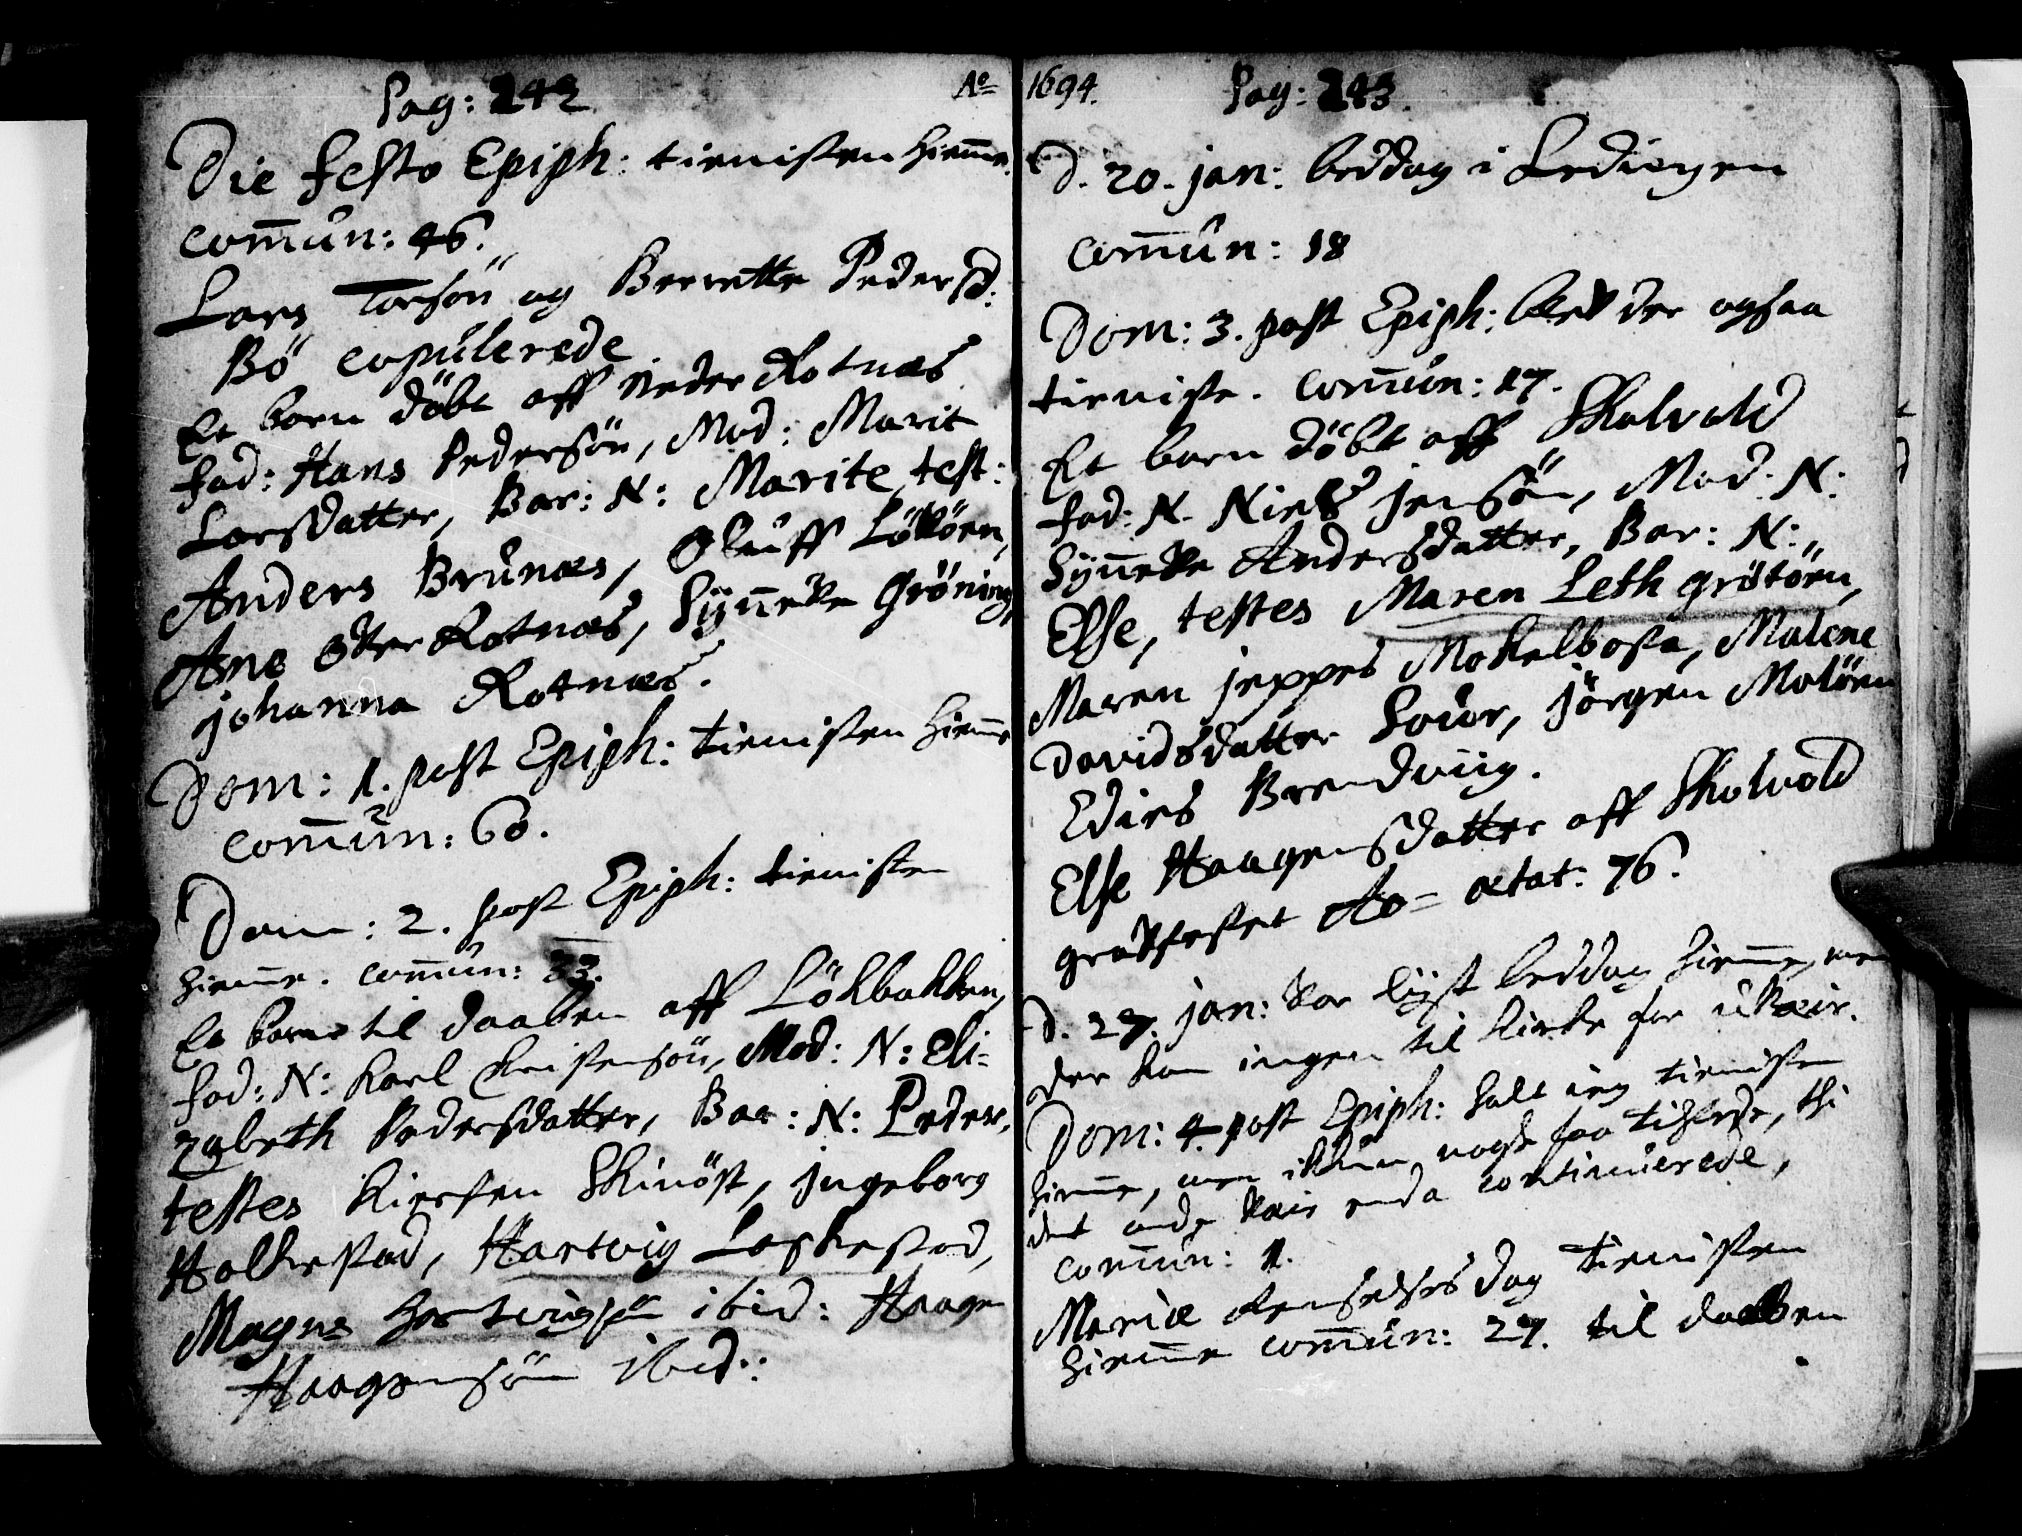 Pag: 242
Die festo Epiph: tienisten hiem̄e.
com̄un: 46.
Lars Torsön og Berrette Pedersd:
Bö copulerede
Et barn döbt aff Neder Rotnæs
fad: Hans Pedersön, Mod: Marit
Larsdatter, Bar: N: Marite, test:
Anders Brunæs, Oluff
Ane Rotnæs, Sÿn̄eve Gröning,
johanna Rotnæs.
Dom: 1. post Epiph: tienisten hiem̄e
com̄un: 60.
Dom: 2. post Epiph: tienisten
hiem̄e. com̄un: 33.
Et barn til daaben aff Lökbakken,
fad: N: Karl Christensön, Mod: N: Eli-
zabeth Pedersdatter, Bar: N: Peder,
testes Kirsten Skinöst, Ingeborg
Holkestad, Hartvig Laskestad,
Magns Hartvigsön ibid: Haagen
Haagensön ibid:
Aº 1694.
Pag: 243.
D. 20. jan: beddag i Lediegen
com̄un: 18
Dom: 3. post Epiph: der ogsaa
tieniste. com̄un: 17.
Et barn döbt aff Skolvold
fad: N. Niels jensön, Mod: N:
Sÿn̄eve Andersdatter, Bar: N:
Else, testes Maren Leth Grötöen,
Maren jeppes Mokelbosta, Malene
Davidsdatter, jörgen Molöen
Edies Brendviig.
Else Haagensdatter aff Skolvold
grafæstet Aº ætat: 76.
d. 27. jan: var lÿst beddag hiem̄e, men
der kom ingen til kirke for uvæir.
Dom: 4. post Epiph: holt ieg tienisten
hiem̄e, men ikkun nogle faa tilstede, thi
det onde væir enda continuerede,
com̄un: 1.
Mariæ Renselses dag tienisten
hiem̄e com̄un: 27. til daaben